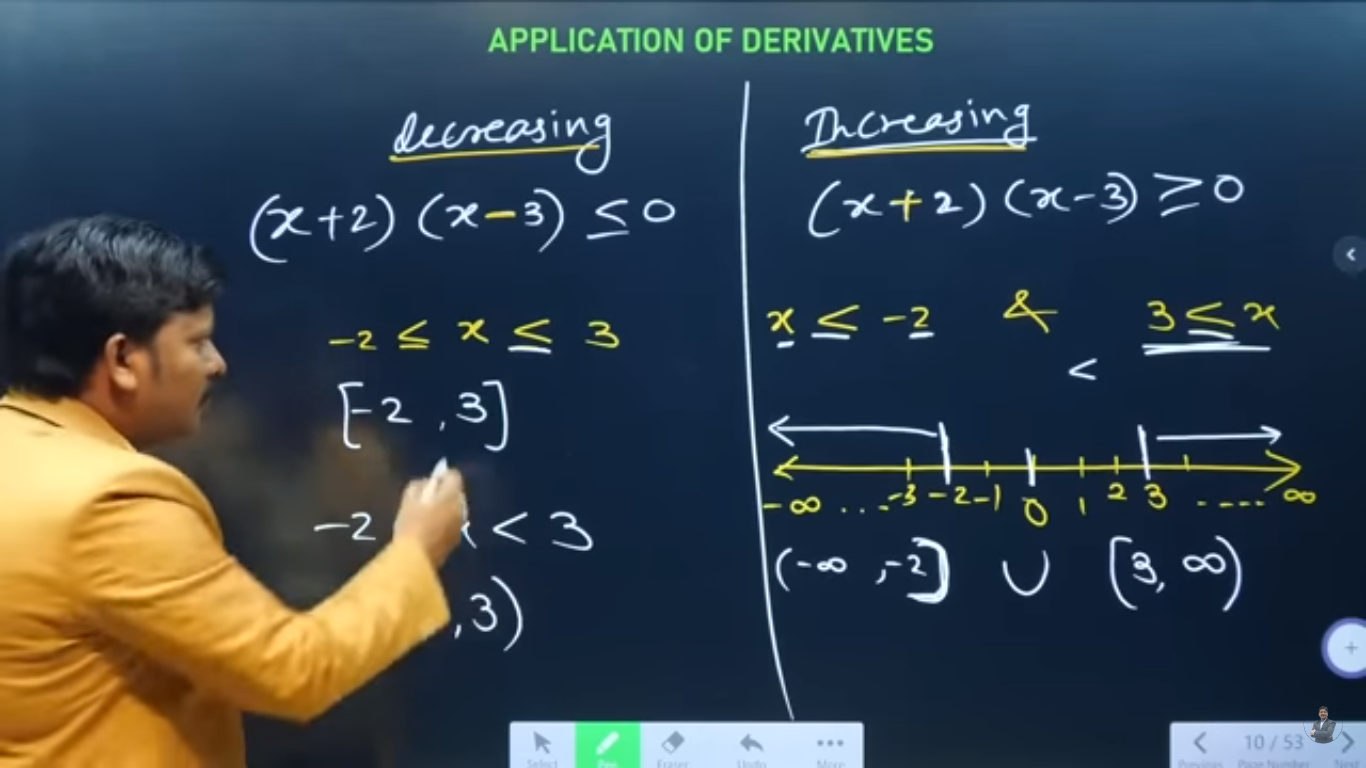 APPLICATION OF DERIVATIVES
decreasing
(x+2) (x-3) ≤ 0
-2 ≤ x ≤ 3
[-2, 3]
-2 < 3
, 3)
Increasing
(x+2) (x-3) ≥ 0
x ≤ -2 & 3 ≤ x
<
-∞ ...-3 -2 -1 0 1 2 3 ----- ∞
(-∞, -2] ∪ [3, ∞)
Select Pen Eraser Undo More
10 / 53
Previous Page Number Next